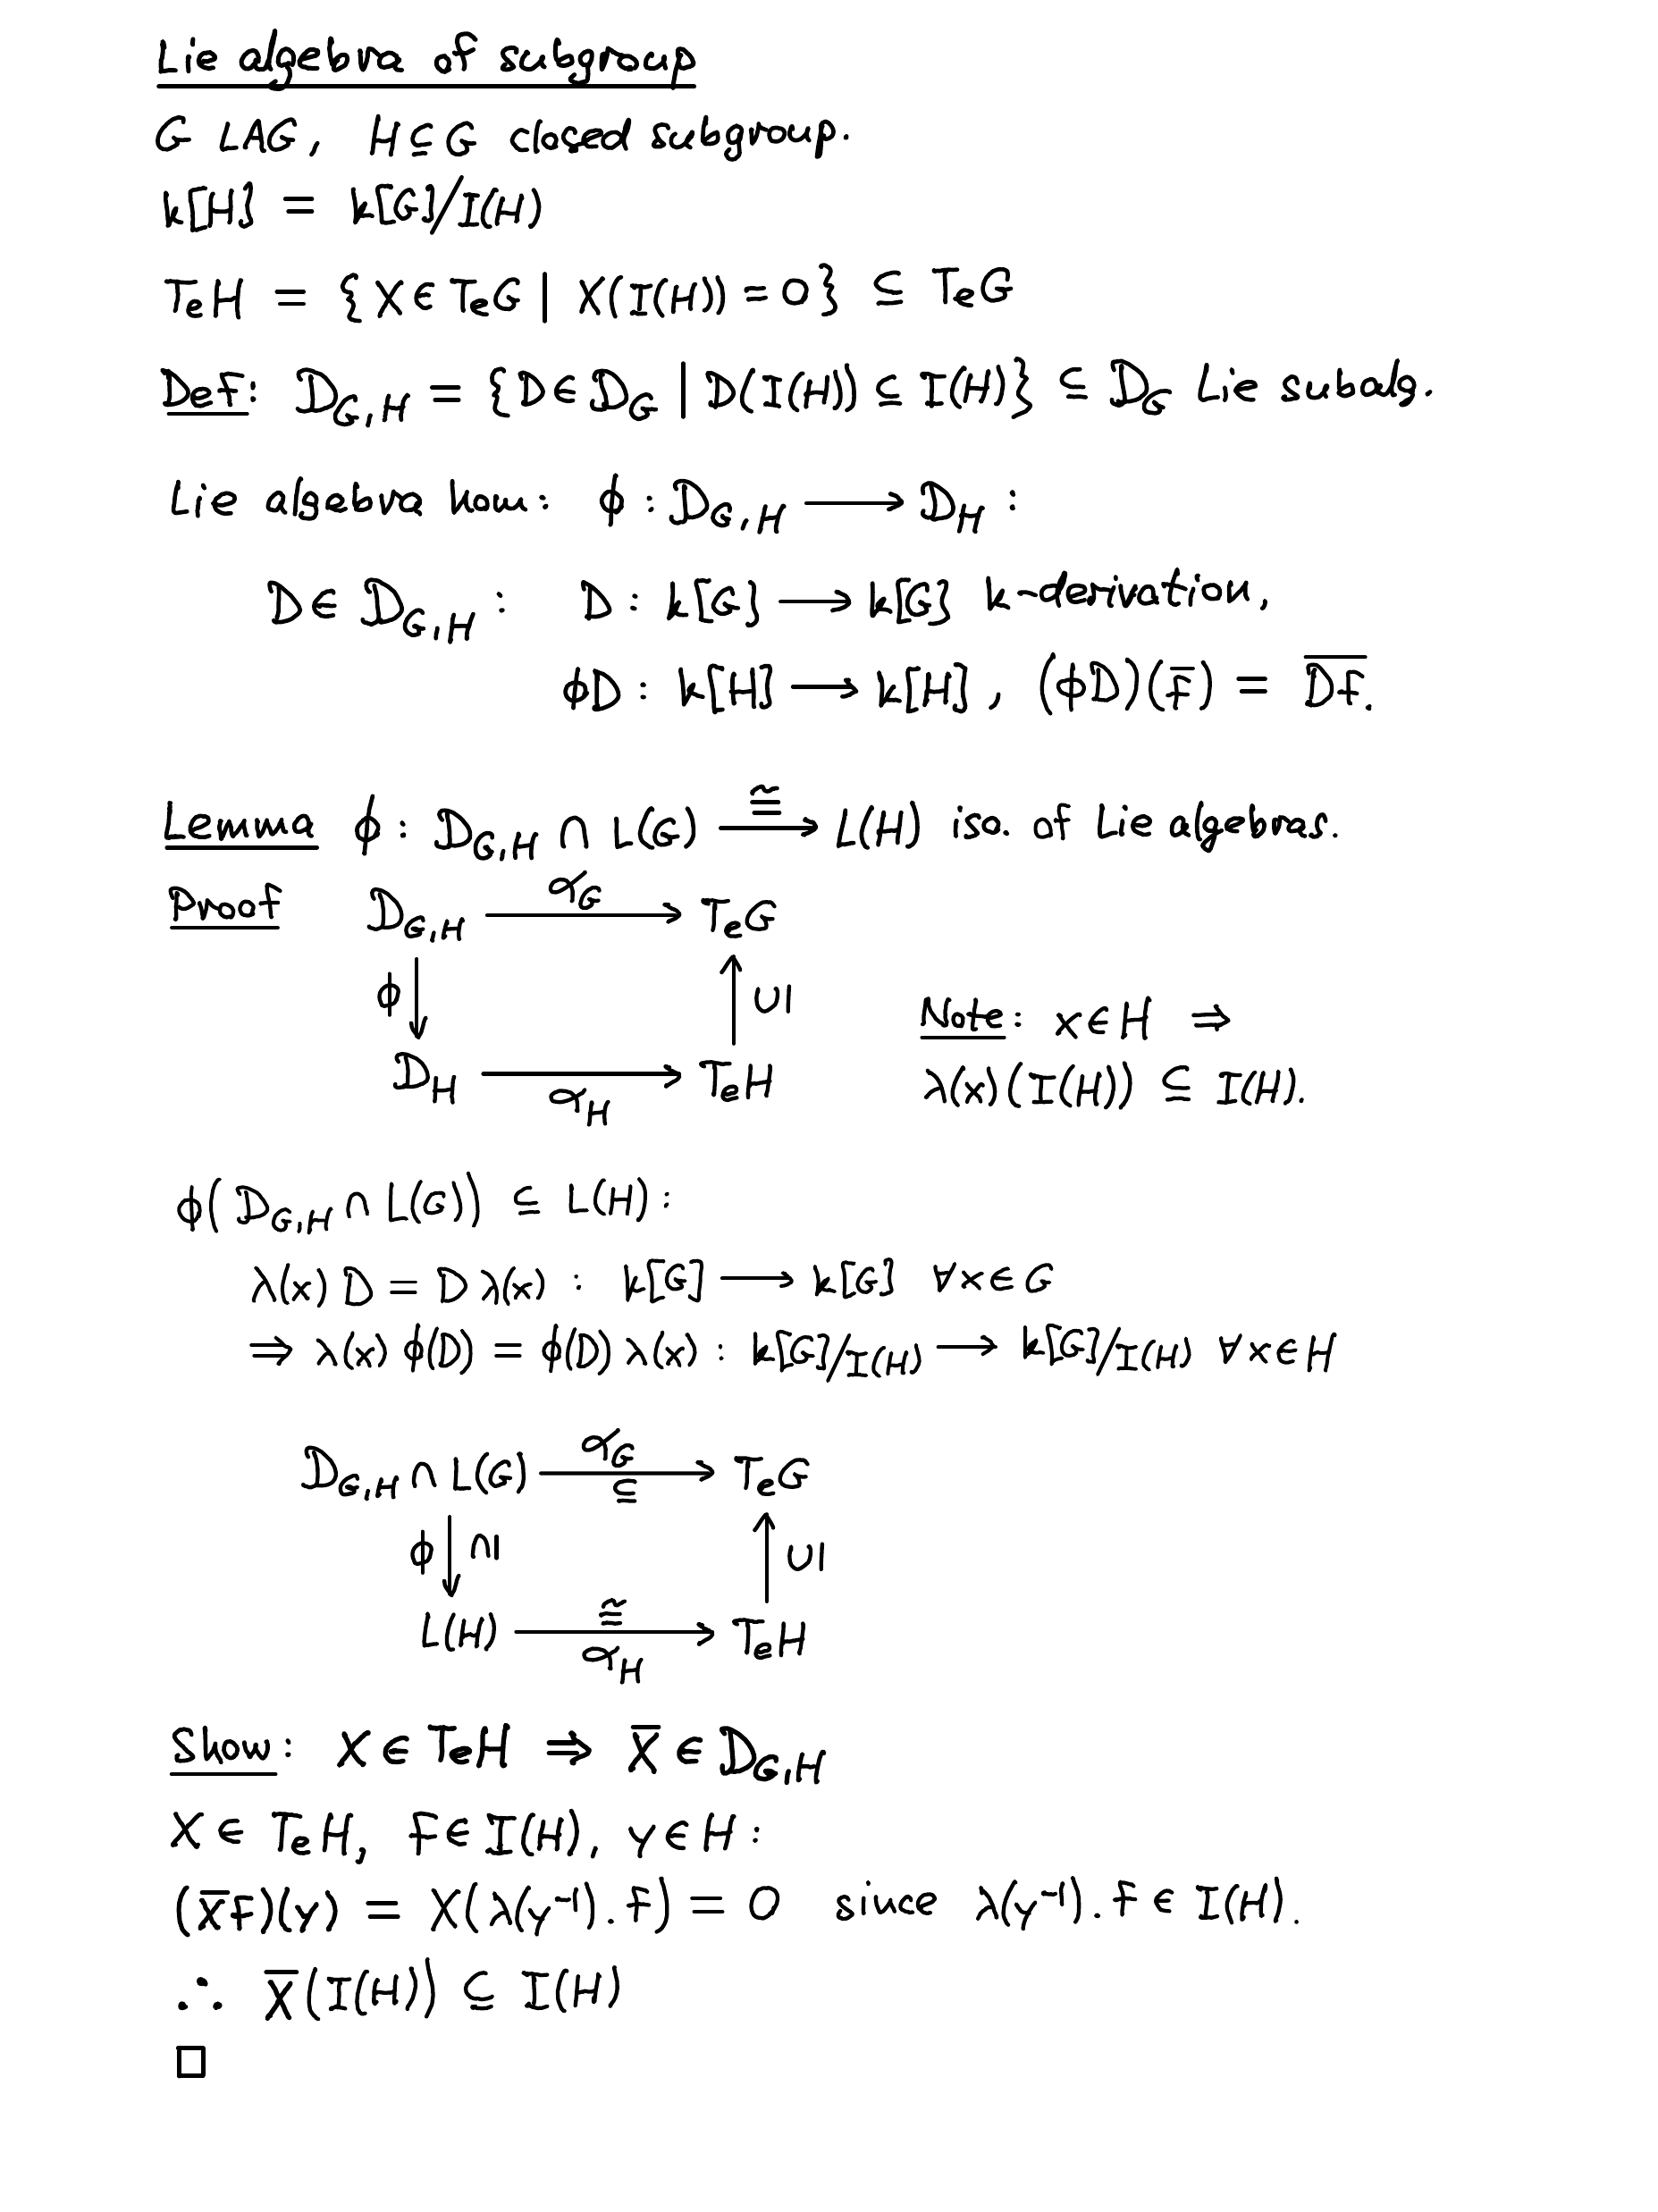 Lie algebra of subgroup
G LAG, H ⊆ G closed subgroup.
k[H] = k[G]/I(H)
TeH = {X ∈ TeG | X(I(H)) = 0} ⊆ TeG
Def: D_{G,H} = {D ∈ D_G | D(I(H)) ⊆ I(H)} ⊆ D_G Lie subalg.
Lie algebra hom: φ : D_{G,H} ⟶ D_H :
D ∈ D_{G,H} : D : k[G] ⟶ k[G] k-derivation,
φD : k[H] ⟶ k[H], (φD)(f̄) = \overline{Df}.
Lemma φ : D_{G,H} ∩ L(G) ⟶^{≅} L(H) iso. of Lie algebras.
Proof D_{G,H} ⟶^{α_G} TeG
φ ↓ ↑ ∪|
Note: x ∈ H ⇒
D_H ⟶_{α_H} TeH
λ(x)(I(H)) ⊆ I(H).
φ(D_{G,H} ∩ L(G)) ⊆ L(H) :
λ(x) D = D λ(x) : k[G] ⟶ k[G] ∀x ∈ G
⇒ λ(x) φ(D) = φ(D) λ(x) : k[G]/I(H) ⟶ k[G]/I(H) ∀x ∈ H
D_{G,H} ∩ L(G) ⟶^{α_G}_{⊆} TeG
φ ↓ ∩| ↑ ∪|
L(H) ⟶^{≅}_{α_H} TeH
Show: X ∈ TeH ⇒ X̄ ∈ D_{G,H}
X ∈ TeH, f ∈ I(H), y ∈ H :
(X̄f)(y) = X(λ(y⁻¹).f) = 0 since λ(y⁻¹).f ∈ I(H).
∴ X̄(I(H)) ⊆ I(H)
□